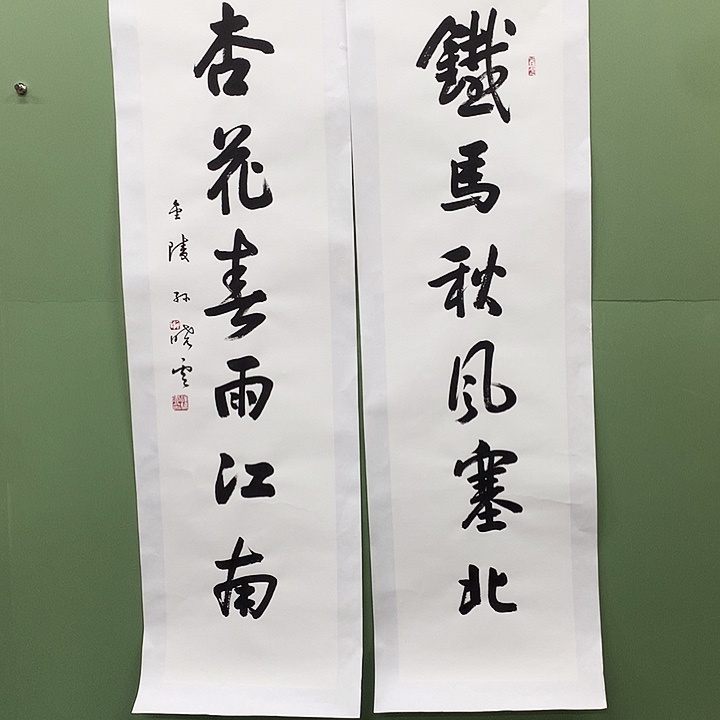 鐵馬秋风塞北
杏花春雨江南
金陵孙晓云